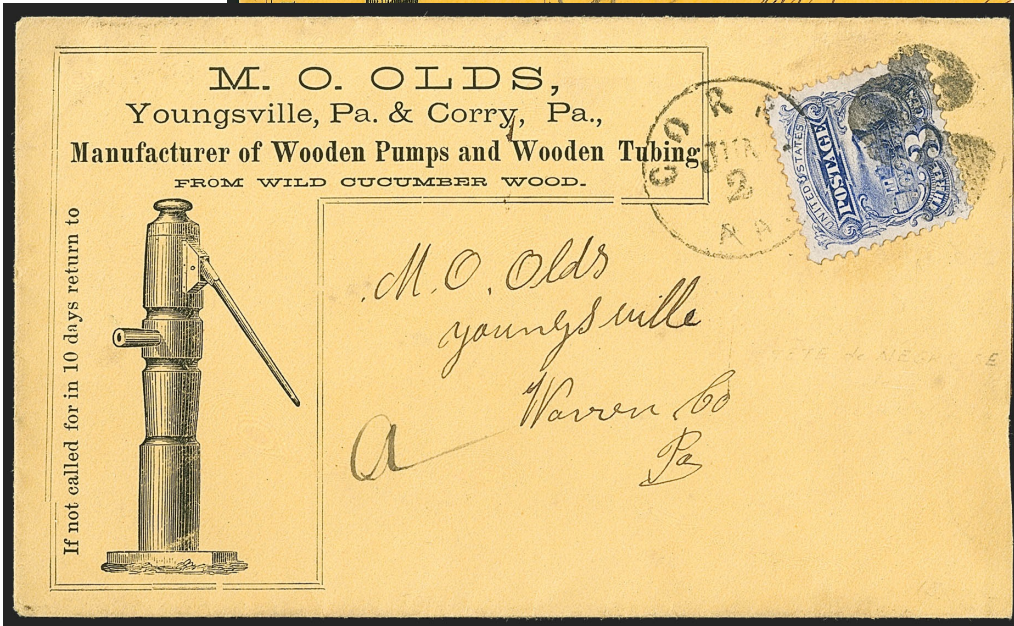 M. O. OLDS,
Youngsville, Pa. & Corry, Pa.,
Manufacturer of Wooden Pumps and Wooden Tubing
FROM WILD CUCUMBER WOOD.
If not called for in 10 days return to
CORR
2
UNITED STATES
POSTAGE
3
M. O. Olds
Youngsville
Warren Co
Pa
a
TETE de NEG